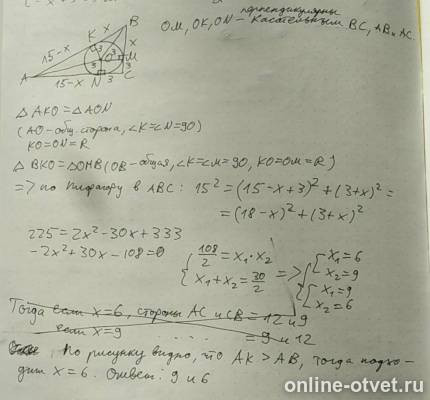 перпендикулярны
OM, OK, ON – касательным BC, AB и AC.
B
x
K
x
15-x
3
3
O
3
M
A
15-x
N
3
C
△ AKO = △ AON
(AO – общ. сторона, <K=<N=90)
KO=ON=R
△ BKO = △ OMB (OB – общая, <K=<M=90, KO=OM=R)
=> по Пифагору в ABC: 15² = (15-x+3)² + (3+x)² =
= (18-x)² + (3+x)²
225 = 2x² - 30x + 333
-2x² + 30x - 108 = 0
108/2 = x₁·x₂
x₁+x₂ = 30/2
=>
x₁=6
x₂=9
x₁=9
x₂=6
Тогда если x=6, стороны AC и CB = 12 и 9
если x=9 . . . . . = 9 и 12
По рисунку видно, что AK > AB, тогда подхо-
дит x=6. Ответ: 9 и 6
online-otvet.ru